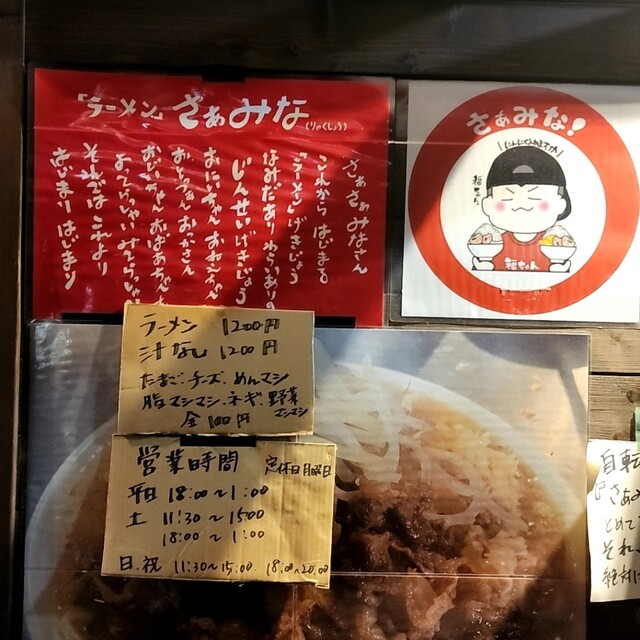 「ラーメン」さぁみな(りゃくしょう)
さぁさぁみなさん
これから はじまる
「ラーメン」げきじょう
なみだあり わらいありの
じんせいげきじょう
おにいちゃん おねえちゃん
おとうさん おかあさん
おじいちゃん おばあちゃん
よってらっしゃい みてらっしゃい
それでは これより
はじまり はじまり
さぁみな!
にんにく入れますか
福ちゃん
福ちゃん
ラーメン 1200円
汁なし 1200円
たまご、チーズ、めんマシ
脂マシマシ、ネギ、野菜マシマシ
全100円
営業時間 定休日月曜日
平日 18:00〜1:00
土 11:30〜15:00
18:00〜1:00
日.祝 11:30〜15:00 18:00〜20:00
自転
とめて
それ
絶対に